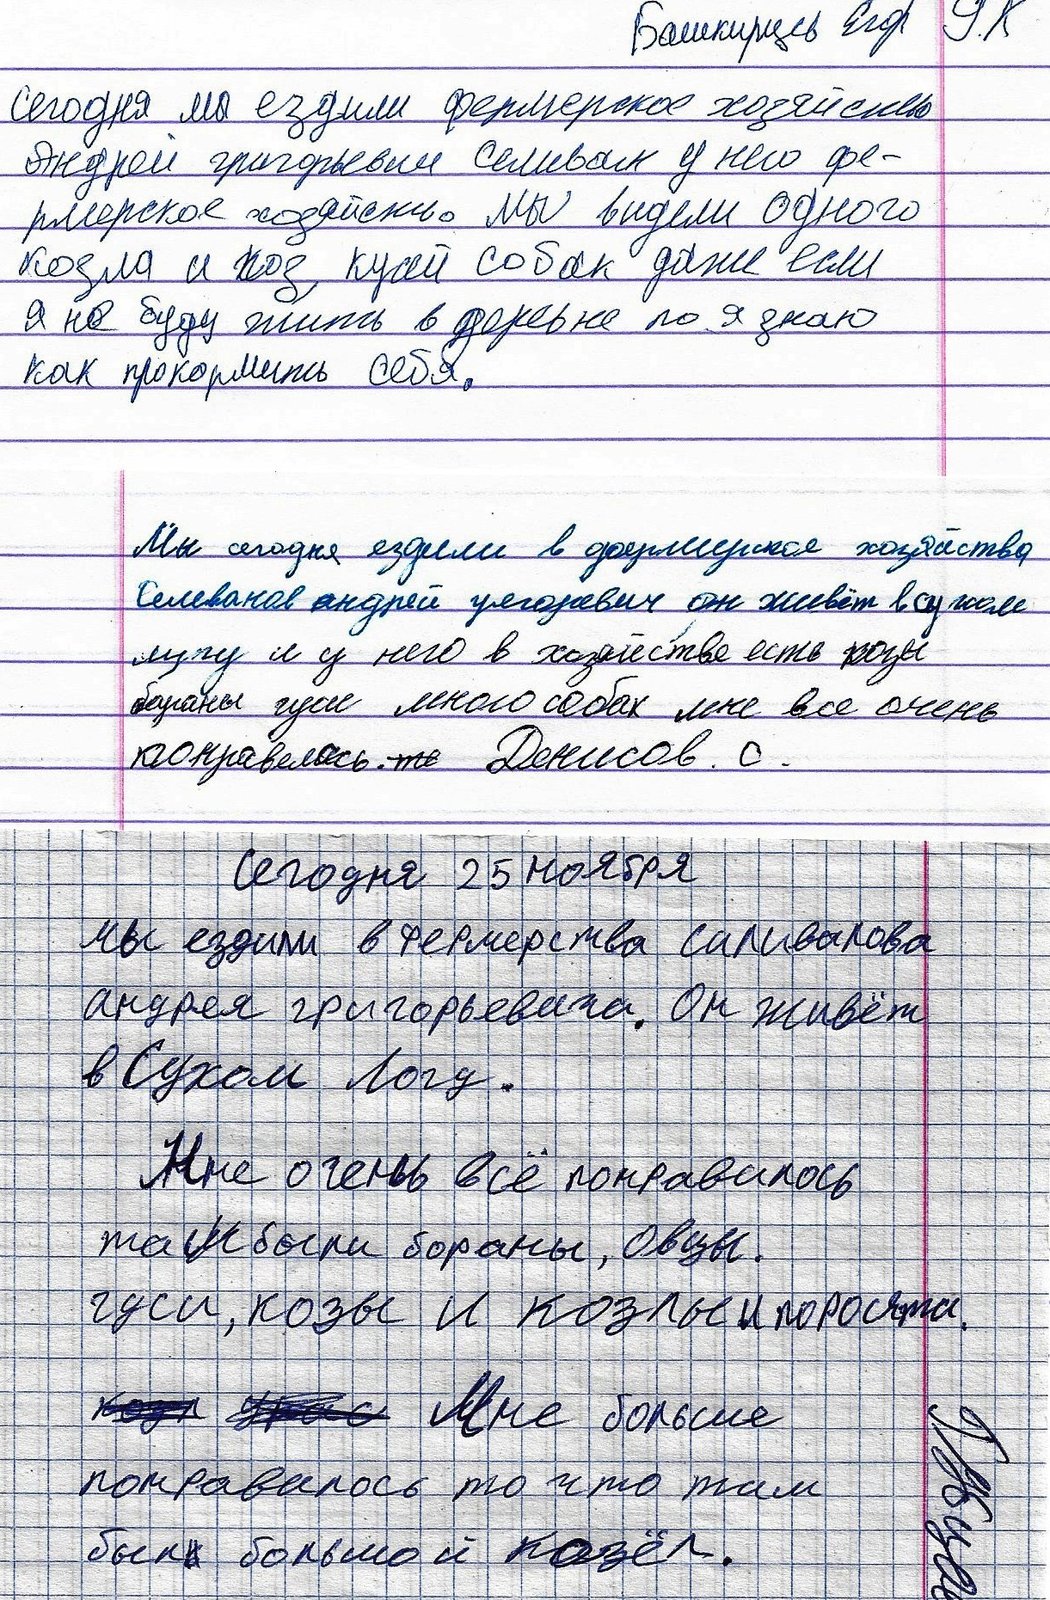 Башкирцев Егор 9.К
Сегодня мы ездили фермерское хозяйство
Андрей григорьевич Селиван у него фе-
рмерское хозяйство. Мы видели одного
козла и коз, кусй собак даже если
я не буду жить в деревне но я знаю
как прокормить себя.
Мы сегодня ездили в фермерское хозяйства
Селеванов андрей он живёт в сухом
логу и у него в хозяйстве есть козы
бараны гуси много собак мне все очень
понравелась. те Денисов. С.
Сегодня 25 ноября
мы ездили в фермерства саливанова
андрея григорьевича. Он живёт
в Сухом Логу.
Мне очень всё понравилось
там были бораны, овцы.
гуси, козы и козлы и поросята.
Мне больше
понравилось то что там
был большой козёл.